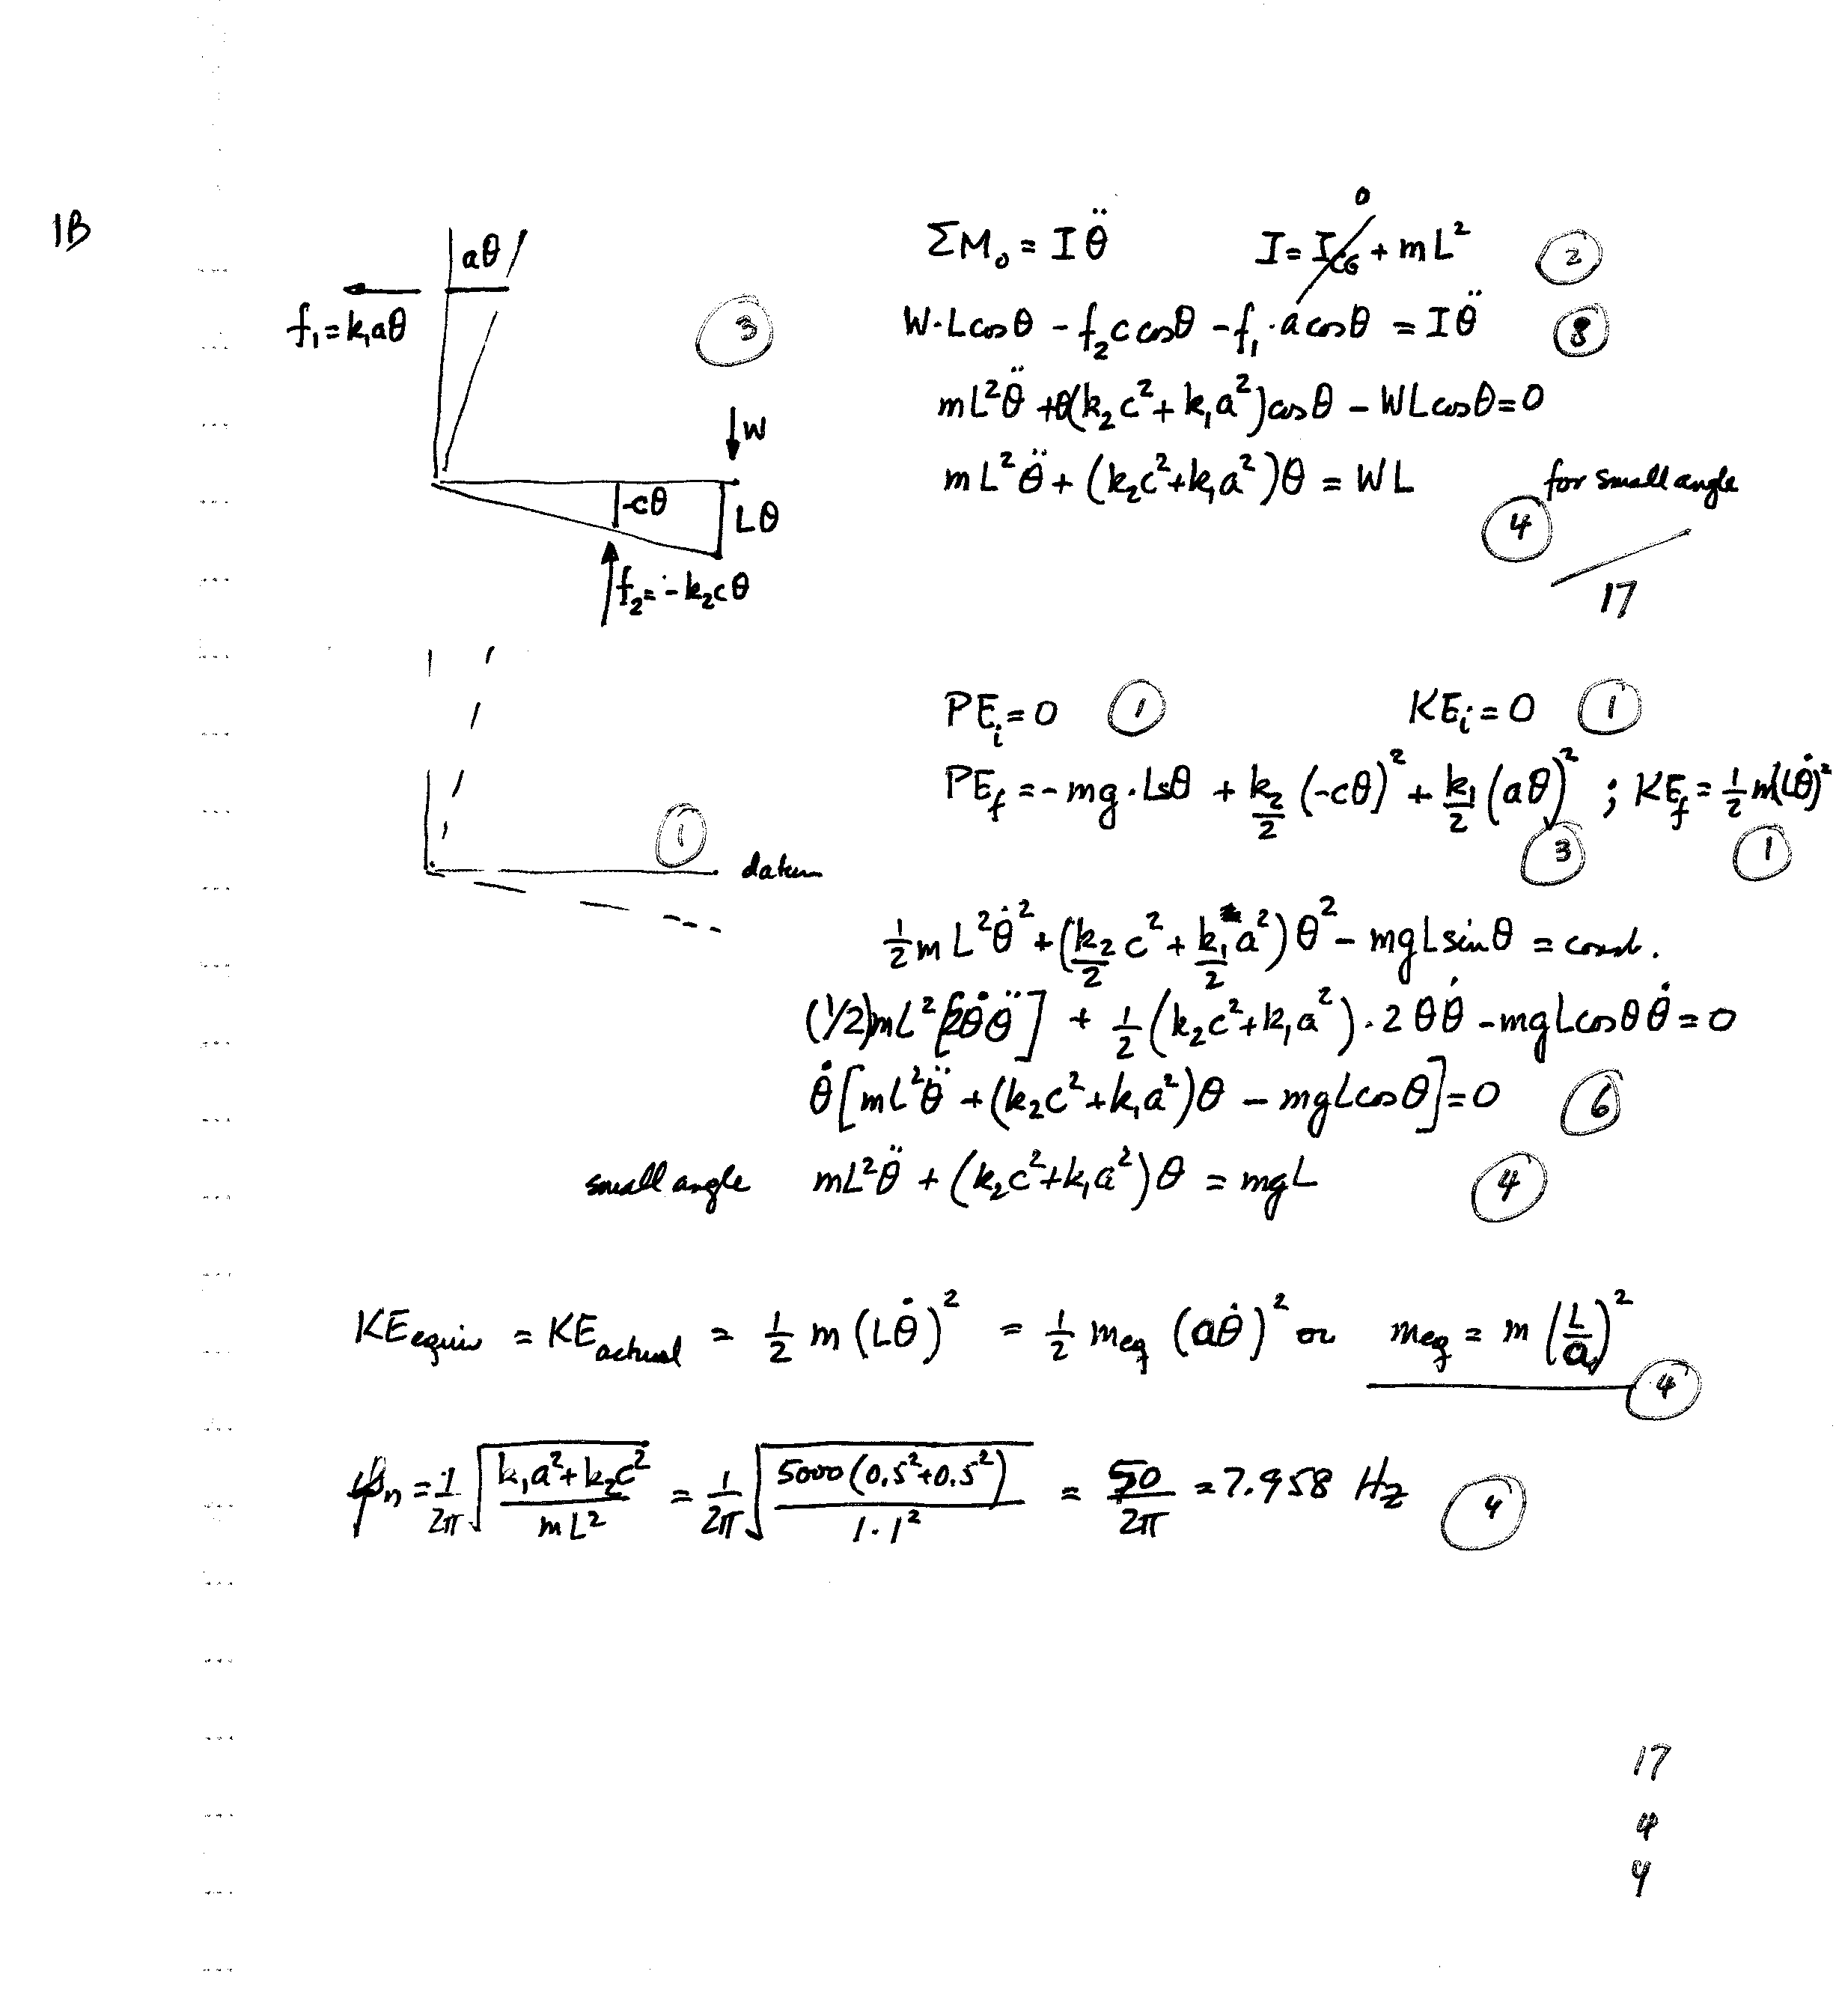 1B
aθ
f₁ = k₁aθ
③
W
-cθ
Lθ
f₂ = -k₂cθ
ΣM₀ = Iθ̈    I = I_CG + mL²    ②
0
W·Lcosθ - f₂c cosθ - f₁·a cosθ = Iθ̈    ⑧
mL²θ̈ + θ(k₂c² + k₁a²)cosθ - WLcosθ = 0
mL²θ̈ + (k₂c² + k₁a²)θ = WL    for small angle
④
17
PE_i = 0    ①    KE_i = 0    ①
PE_f = -mg·Lsθ + k₂/2 (-cθ)² + k₁/2 (aθ)² ; KE_f = 1/2 m(Lθ̇)²
③    ①
①    datum
1/2 mL²θ̇² + (k₂/2 c² + k₁/2 a²)θ² - mgLsinθ = const.
(1/2)mL²[2θ̇θ̈] + 1/2 (k₂c² + k₁a²)·2θθ̇ - mgLcosθ θ̇ = 0
θ̇[mL²θ̈ + (k₂c² + k₁a²)θ - mgLcosθ] = 0    ⑥
small angle    mL²θ̈ + (k₂c² + k₁a²)θ = mgL    ④
KE equiv = KE actual = 1/2 m (Lθ̇)² = 1/2 m_eq (aθ̇)² or m_eq = m (L/a)²
④
f_n = 1/2π √((k₁a² + k₂c²)/(mL²)) = 1/2π √(5000(0.5² + 0.5²)/(1·1²)) = 50/2π = 7.958 Hz    ④
17
4
4